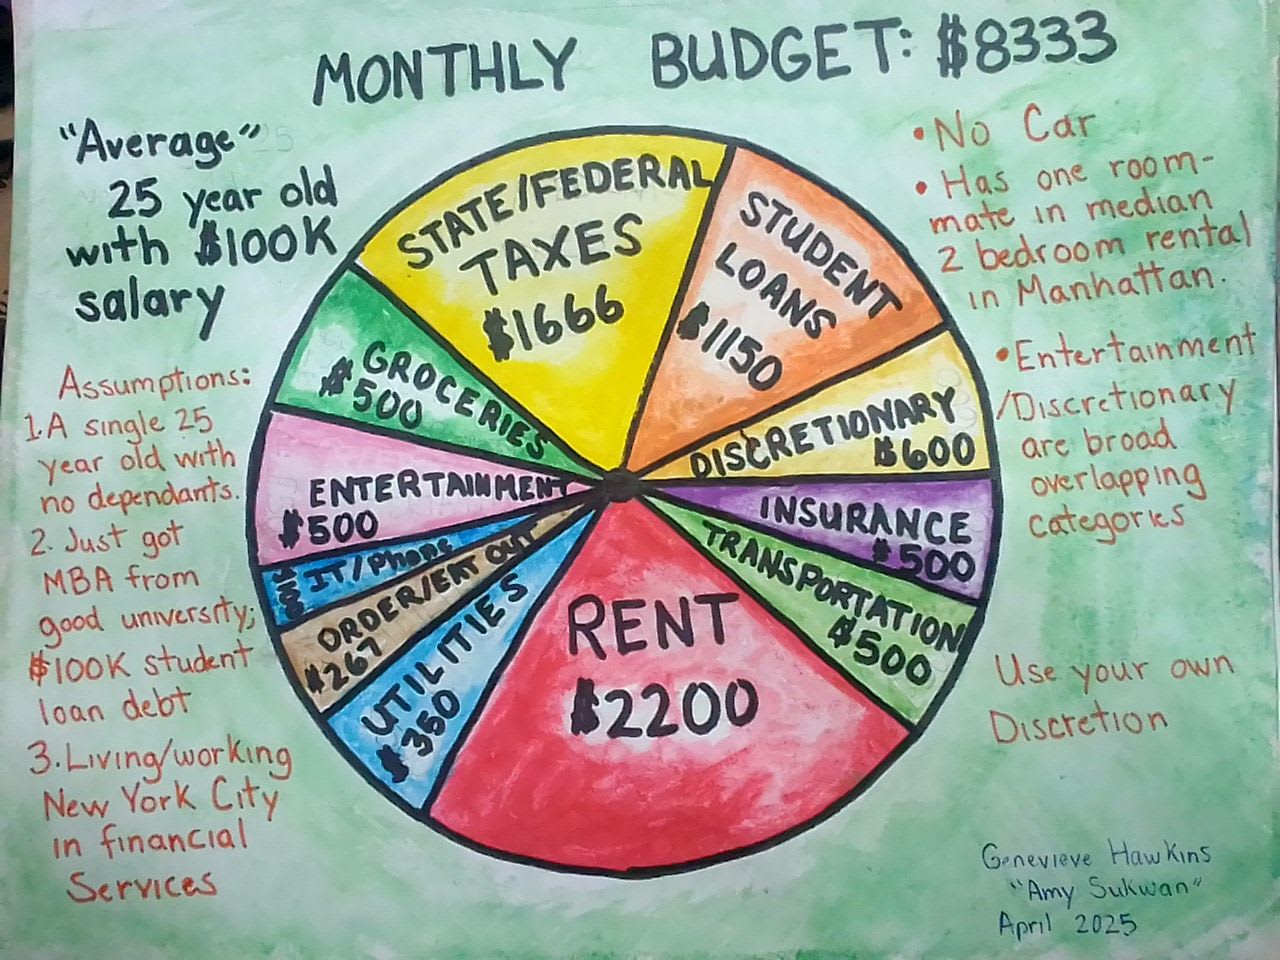 MONTHLY BUDGET: $8333
"Average"
25 year old
with $100K
salary
Assumptions:
1. A single 25
year old with
no dependants.
2. Just got
MBA from
good university;
$100K student
loan debt
3. Living/working
New York City
in financial
Services
STATE/FEDERAL
TAXES
$1666
STUDENT
LOANS
$1150
DISCRETIONARY
$600
INSURANCE
$500
TRANSPORTATION
$500
RENT
$2200
UTILITIES
$350
ORDER/EAT OUT
$267
IT/Phone
ENTERTAINMENT
$500
GROCERIES
$500
• No Car
• Has one room-
mate in median
2 bedroom rental
in Manhattan.
• Entertainment
/Discretionary
are broad
overlapping
categories
Use your own
Discretion
Genevieve Hawkins
"Amy Sukwan"
April 2025